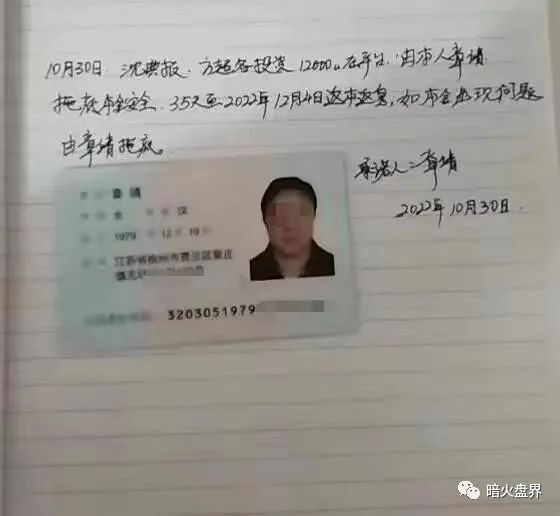 10月30日 沈典报、方超各投资12000u在平台,由本人章靖
拖底本金安全.35天至2022年12月4日返本返息,如本金出现问题
由章靖拖底。
承诺人:章靖
2022年10月30日.
章靖
女 汉
1979 年 12 月 19 日
江苏省徐州市贾汪区紫庄
镇
3203051979
暗火盘界